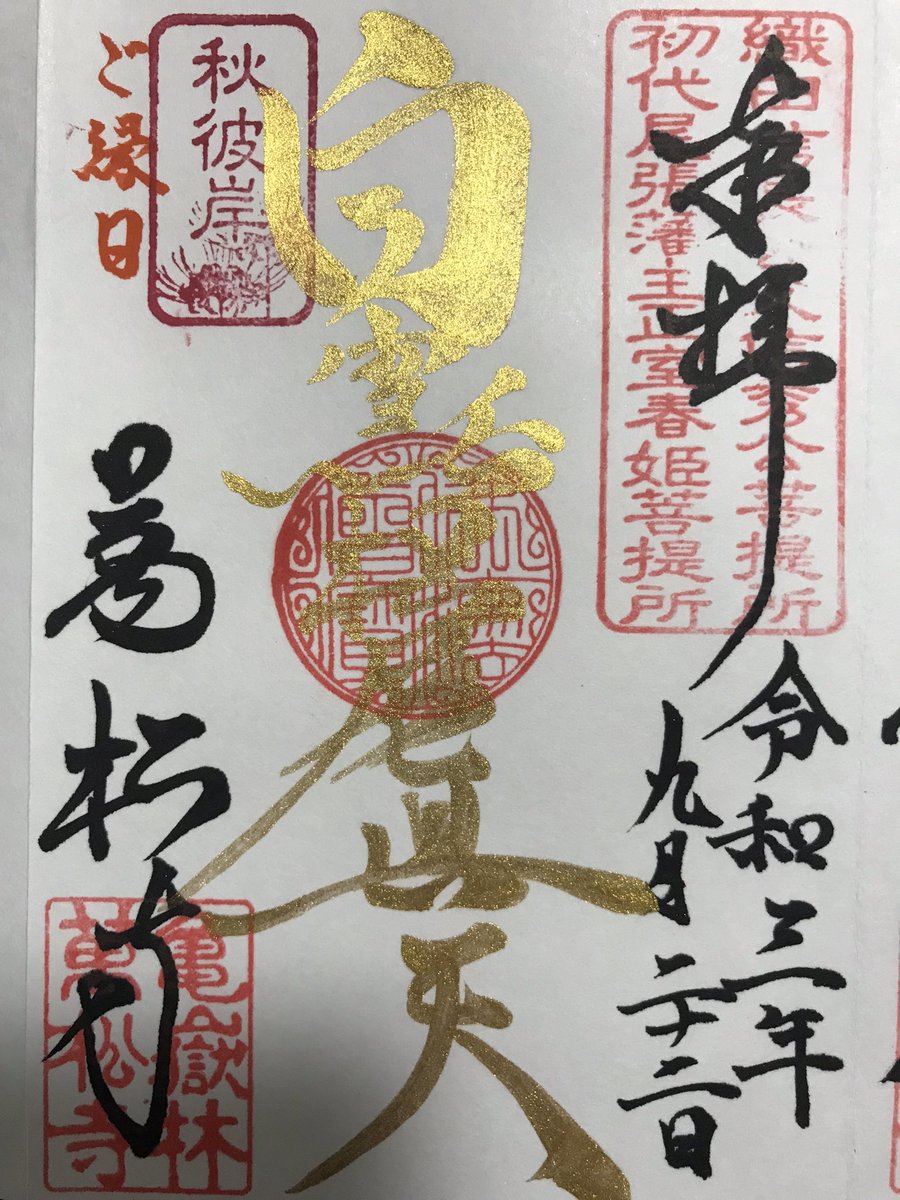 奉拝
織田 秀公菩提所
初代尾張藩主正室春姫菩提所
令和三年
九月二十二日
白雪 眞天
秋彼岸
ご縁日
萬松寺
亀嶽林
萬松寺